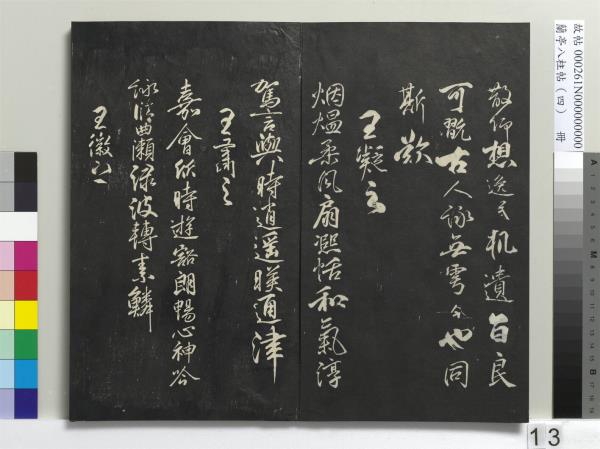 散仰想逸民机遺旨良
可翫古人詠無雩今也同
斯歎
王凝之
烟熅柔風扇熙怡和氣淳
駕言興時逍遥暎通津
王肅之
嘉會欣時遊豁朗暢心神吟
詠清曲瀨渌波轉素鱗
王徽之
故帖 000261N000000000
蘭亭八柱帖(四) 冊
13